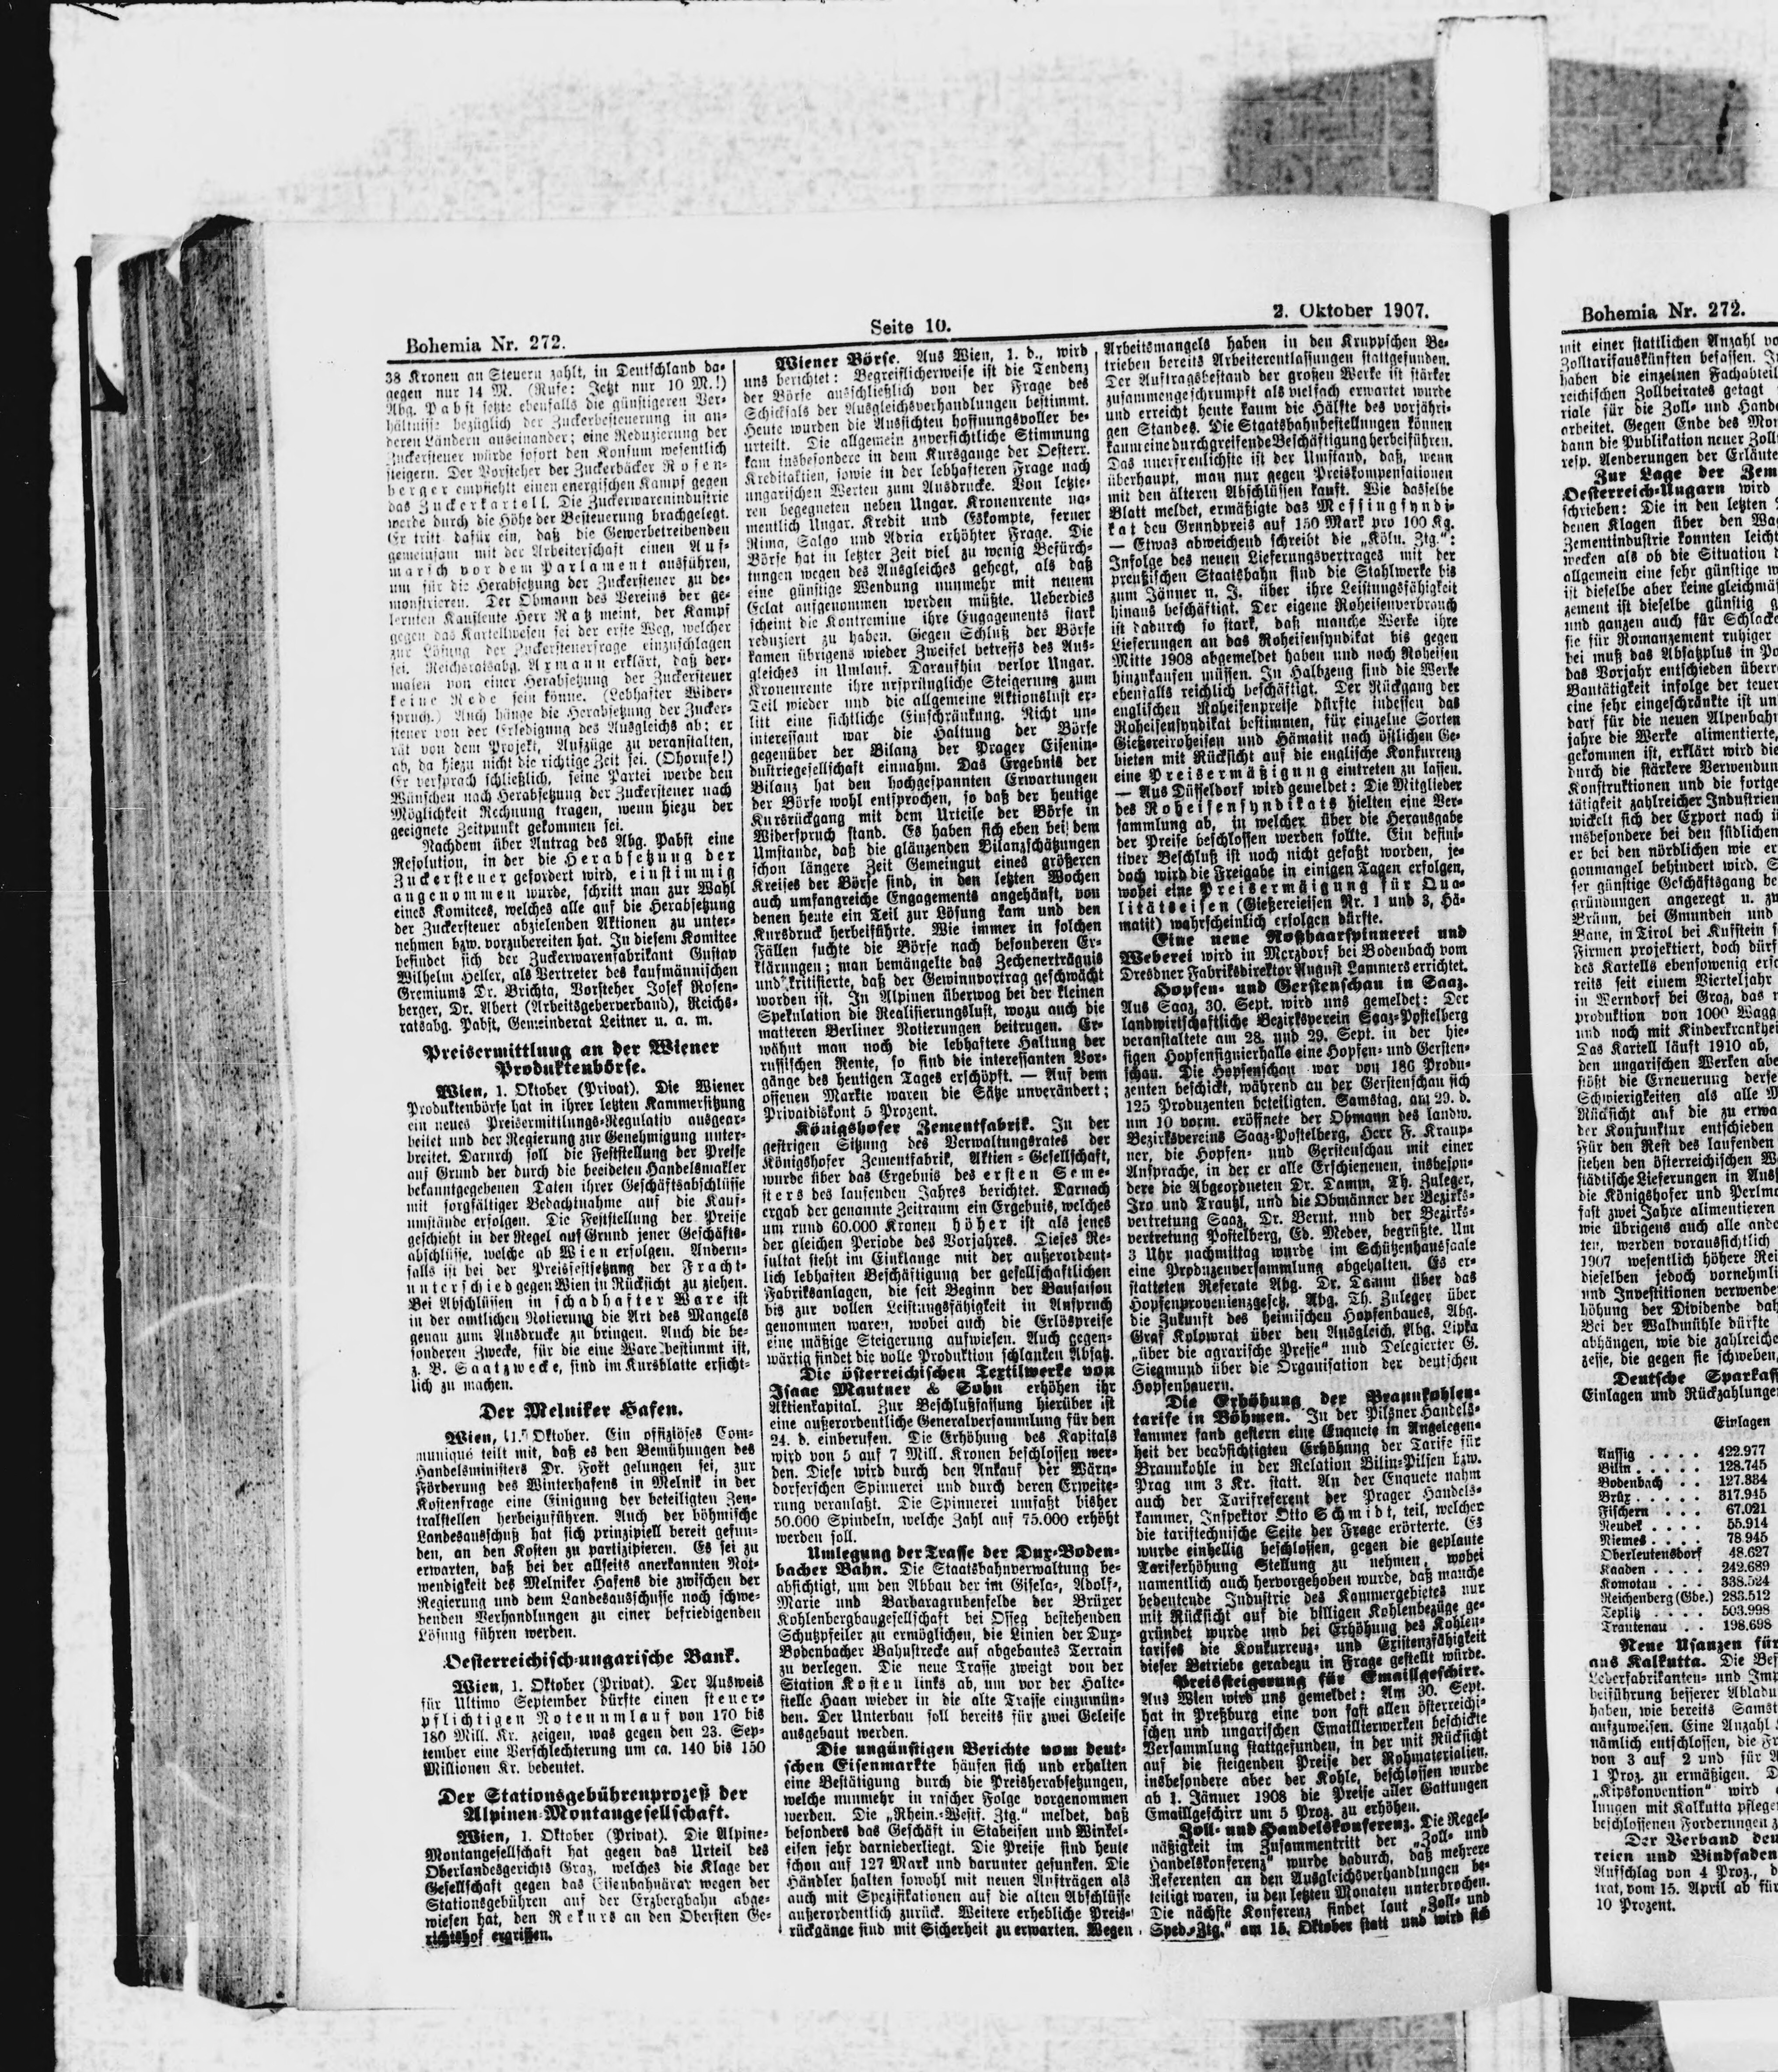 Bohemia Nr. 272.
Seite 10.
2. Oktober 1907.
38 Kronen an Steuern zahlt, in Deutschland da-
gegen nur 14 M. (Rufe: Jetzt nur 10 M.!)
Abg. Pabst setzte ebenfalls die günstigeren Ver-
hältnisse bezüglich der Zuckerbesteuerung in an-
deren Ländern auseinander; eine Reduzierung der
Zuckersteuer würde sofort den Konsum wesentlich
steigern. Der Vorsteher der Zuckerbäcker Rosen-
berger empfiehlt einen energischen Kampf gegen
das Zuckerkartell. Die Zuckerwarenindustrie
werde durch die Höhe der Besteuerung brachgelegt.
Er tritt dafür ein, daß die Gewerbetreibenden
gemeinsam mit der Arbeiterschaft einen Auf-
marsch vor dem Parlament ausführen,
um für die Herabsetzung der Zuckersteuer zu de-
monstrieren. Der Obmann des Vereins der ge-
lernten Kaufleute Herr Ratz meint, der Kampf
gegen das Kartellwesen sei der erste Weg, welcher
zur Lösung der Zuckersteuerfrage einzuschlagen
sei. Reichsratsabg. Axmann erklärt, daß der-
malen von einer Herabsetzung der Zuckersteuer
keine Rede sein könne. (Lebhafter Wider-
spruch.) Auch hänge die Herabsetzung der Zucker-
steuer von der Erledigung des Ausgleichs ab; er
rät von dem Projekt, Aufzüge zu veranstalten,
ab, da hiezu nicht die richtige Zeit sei. (Ohorufe!)
Er versprach schließlich, seine Partei werde den
Wünschen nach Herabsetzung der Zuckersteuer nach
Möglichkeit Rechnung tragen, wenn hiezu der
geeignete Zeitpunkt gekommen sei.
Nachdem über Antrag des Abg. Pabst eine
Resolution, in der die Herabsetzung der
Zuckersteuer gefordert wird, einstimmig
angenommen wurde, schritt man zur Wahl
eines Komitees, welches alle auf die Herabsetzung
der Zuckersteuer abzielenden Aktionen zu unter-
nehmen bzw. vorzubereiten hat. In diesem Komitee
befindet sich der Zuckerwarenfabrikant Gustav
Wilhelm Heller, als Vertreter des kaufmännischen
Gremiums Dr. Brichta, Vorsteher Josef Rosen-
berger, Dr. Abert (Arbeitsgeberverband), Reichs-
ratsabg. Pabst, Gemeinderat Leitner u. a. m.
Preisermittlung an der Wiener
Produktenbörse.
Wien, 1. Oktober (Privat). Die Wiener
Produktenbörse hat in ihrer letzten Kammersitzung
ein neues Preisermittlungs-Regulativ ausgear-
beitet und der Regierung zur Genehmigung unter-
breitet. Darnach soll die Feststellung der Preise
auf Grund der durch die beeideten Handelsmakler
bekanntgegebenen Daten ihrer Geschäftsabschlüsse
mit sorgfältiger Bedachtnahme auf die Kauf-
umstände erfolgen. Die Feststellung der Preise
geschieht in der Regel auf Grund jener Geschäfts-
abschlüsse, welche ab Wien erfolgen. Andern-
falls ist bei der Preisfestsetzung der Fracht-
unterschied gegen Wien in Rücksicht zu ziehen.
Bei Abschlüssen in schadhafter Ware ist
in der amtlichen Notierung die Art des Mangels
genau zum Ausdrucke zu bringen. Auch die be-
sonderen Zwecke, für die eine Ware bestimmt ist,
z. B. Saatzwecke, sind im Kursblatte ersicht-
lich zu machen.
Der Melniker Hafen.
Wien, 1. Oktober. Ein offiziöses Com-
muniqué teilt mit, daß es den Bemühungen des
Handelsministers Dr. Fořt gelungen sei, zur
Förderung des Winterhafens in Melnik in der
Kostenfrage eine Einigung der beteiligten Zen-
tralstellen herbeizuführen. Auch der böhmische
Landesausschuß hat sich prinzipiell bereit gefun-
den, an den Kosten zu partizipieren. Es sei zu
erwarten, daß bei der allseits anerkannten Not-
wendigkeit des Melniker Hafens die zwischen der
Regierung und dem Landesausschusse noch schwe-
benden Verhandlungen zu einer befriedigenden
Lösung führen werden.
Oesterreichisch-ungarische Bank.
Wien, 1. Oktober (Privat). Der Ausweis
für Ultimo September dürfte einen steuer-
pflichtigen Notenumlauf von 170 bis
180 Mill. Kr. zeigen, was gegen den 23. Sep-
tember eine Verschlechterung um ca. 140 bis 150
Millionen Kr. bedeutet.
Der Stationsgebührenprozeß der
Alpinen-Montangesellschaft.
Wien, 1. Oktober (Privat). Die Alpine-
Montangesellschaft hat gegen das Urteil des
Oberlandesgerichts Graz, welches die Klage der
Gesellschaft gegen das Eisenbahnärar wegen der
Stationsgebühren auf der Erzbergbahn abge-
wiesen hat, den Rekurs an den Obersten Ge-
richtshof ergriffen.
Wiener Börse. Aus Wien, 1. d., wird
uns berichtet: Begreiflicherweise ist die Tendenz
der Börse ausschließlich von der Frage des
Schicksals der Ausgleichsverhandlungen bestimmt.
Heute wurden die Aussichten hoffnungsvoller be-
urteilt. Die allgemein zuversichtliche Stimmung
kam insbesondere in dem Kursgange der Oesterr.
Kreditaktien, sowie in der lebhafteren Frage nach
ungarischen Werten zum Ausdrucke. Von letzte-
ren begegneten neben Ungar. Kronenrente na-
mentlich Ungar. Kredit und Eskompte, ferner
Rima, Salgo und Adria erhöhter Frage. Die
Börse hat in letzter Zeit viel zu wenig Befürch-
tungen wegen des Ausgleiches gehegt, als daß
eine günstige Wendung nunmehr mit neuem
Eclat aufgenommen werden müßte. Ueberdies
scheint die Kontremine ihre Engagements stark
reduziert zu haben. Gegen Schluß der Börse
kamen übrigens wieder Zweifel betreffs des Aus-
gleiches in Umlauf. Daraufhin verlor Ungar.
Kronenrente ihre ursprüngliche Steigerung zum
Teil wieder und die allgemeine Aktionslust er-
litt eine sichtliche Einschränkung. Nicht un-
interessant war die Haltung der Börse
gegenüber der Bilanz der Prager Eisenin-
dustriegesellschaft einnahm. Das Ergebnis der
Bilanz hat den hochgespannten Erwartungen
der Börse wohl entsprochen, so daß der heutige
Kursrückgang mit dem Urteile der Börse in
Widerspruch stand. Es haben sich eben bei dem
Umstande, daß die glänzenden Bilanzschätzungen
schon längere Zeit Gemeingut eines größeren
Kreises der Börse sind, in den letzten Wochen
auch umfangreiche Engagements angehäuft, von
denen heute ein Teil zur Lösung kam und den
Kursdruck herbeiführte. Wie immer in solchen
Fällen suchte die Börse nach besonderen Er-
klärungen; man bemängelte das Zechenerträgnis
und kritisierte, daß der Gewinnvortrag geschwächt
worden ist. In Alpinen überwog bei der kleinen
Spekulation die Realisierungslust, wozu auch die
matteren Berliner Notierungen beitrugen. Er-
wähnt man noch die lebhaftere Haltung der
russischen Rente, so sind die interessanten Vor-
gänge des heutigen Tages erschöpft. — Auf dem
offenen Markte waren die Sätze unverändert;
Privatdiskont 5 Prozent.
Königshofer Zementfabrik. In der
gestrigen Sitzung des Verwaltungsrates der
Königshofer Zementfabrik, Aktien-Gesellschaft,
wurde über das Ergebnis des ersten Seme-
sters des laufenden Jahres berichtet. Darnach
ergab der genannte Zeitraum ein Ergebnis, welches
um rund 60.000 Kronen höher ist als jenes
der gleichen Periode des Vorjahres. Dieses Re-
sultat steht im Einklange mit der außerordent-
lich lebhaften Beschäftigung der gesellschaftlichen
Fabriksanlagen, die seit Beginn der Bausaison
bis zur vollen Leistungsfähigkeit in Anspruch
genommen waren, wobei auch die Erlöspreise
eine mäßige Steigerung aufwiesen. Auch gegen-
wärtig findet die volle Produktion schlanken Absatz.
Die österreichischen Textilwerke von
Isaac Mautner & Sohn erhöhen ihr
Aktienkapital. Zur Beschlußfassung hierüber ist
eine außerordentliche Generalversammlung für den
24. d. einberufen. Die Erhöhung des Kapitals
wird von 5 auf 7 Mill. Kronen beschlossen wer-
den. Diese wird durch den Ankauf der Wärn-
dorferschen Spinnerei und durch deren Erweite-
rung veranlaßt. Die Spinnerei umfaßt bisher
50.000 Spindeln, welche Zahl auf 75.000 erhöht
werden soll.
Umlegung der Trasse der Dux-Boden-
bacher Bahn. Die Staatsbahnverwaltung be-
absichtigt, um den Abbau der im Gisela-, Adolf-,
Marie und Barbaragrubenfelde der Brüxer
Kohlenbergbaugesellschaft bei Osseg bestehenden
Schutzpfeiler zu ermöglichen, die Linien der Dux-
Bodenbacher Bahnstrecke auf abgebautes Terrain
zu verlegen. Die neue Trasse zweigt von der
Station Kosten links ab, um vor der Halte-
stelle Haan wieder in die alte Trasse einzumün-
den. Der Unterbau soll bereits für zwei Geleise
ausgebaut werden.
Die ungünstigen Berichte vom deut-
schen Eisenmarkte häufen sich und erhalten
eine Bestätigung durch die Preisherabsetzungen,
welche nunmehr in rascher Folge vorgenommen
werden. Die „Rhein.-Westf. Ztg." meldet, daß
besonders das Geschäft in Stabeisen und Winkel-
eisen sehr darniederliegt. Die Preise sind heute
schon auf 127 Mark und darunter gesunken. Die
Händler halten sowohl mit neuen Aufträgen als
auch mit Spezifikationen auf die alten Abschlüsse
außerordentlich zurück. Weitere erhebliche Preis-
rückgänge sind mit Sicherheit zu erwarten. Wegen
Arbeitsmangels haben in den Kruppschen Be-
trieben bereits Arbeiterentlassungen stattgefunden.
Der Auftragsbestand der großen Werke ist stärker
zusammengeschrumpft als vielfach erwartet wurde
und erreicht heute kaum die Hälfte des vorjähri-
gen Standes. Die Staatsbahnbestellungen können
kaum eine durchgreifende Beschäftigung herbeiführen.
Das unerfreulichste ist der Umstand, daß, wenn
überhaupt, man nur gegen Preiskompensationen
mit den älteren Abschlüssen kauft. Wie dasselbe
Blatt meldet, ermäßigte das Messingsyndi-
kat den Grundpreis auf 150 Mark pro 100 Kg.
— Etwas abweichend schreibt die „Köln. Ztg.":
Infolge des neuen Lieferungsvertrages mit der
preußischen Staatsbahn sind die Stahlwerke bis
zum Jänner n. J. über ihre Leistungsfähigkeit
hinaus beschäftigt. Der eigene Roheisenverbrauch
ist dadurch so stark, daß manche Werke ihre
Lieferungen an das Roheisensyndikat bis gegen
Mitte 1908 abgemeldet haben und noch Roheisen
hinzukaufen müssen. In Halbzeug sind die Werke
ebenfalls reichlich beschäftigt. Der Rückgang der
englischen Roheisenpreise dürfte indessen das
Roheisensyndikat bestimmen, für einzelne Sorten
Gießereiroheisen und Hämatit nach östlichen Ge-
bieten mit Rücksicht auf die englische Konkurrenz
eine Preisermäßigung eintreten zu lassen.
— Aus Düsseldorf wird gemeldet: Die Mitglieder
des Roheisensyndikats hielten eine Ver-
sammlung ab, in welcher über die Herausgabe
der Preise beschlossen werden sollte. Ein defini-
tiver Beschluß ist noch nicht gefaßt worden, je-
doch wird die Freigabe in einigen Tagen erfolgen,
wobei eine Preisermäigung für Qua-
litätseisen (Gießereieisen Nr. 1 und 3, Hä-
matit) wahrscheinlich erfolgen dürfte.
Eine neue Roßhaarspinnerei und
Weberei wird in Merzdorf bei Bodenbach vom
Dresdner Fabriksdirektor August Lammers errichtet.
Hopfen- und Gerstenschau in Saaz.
Aus Saaz, 30. Sept. wird uns gemeldet: Der
landwirtschaftliche Bezirksverein Saaz-Postelberg
veranstaltete am 28. und 29. Sept. in der hie-
sigen Hopfensignierhalle eine Hopfen- und Gersten-
schau. Die Hopfenschau war von 186 Produ-
zenten beschickt, während an der Gerstenschau sich
125 Produzenten beteiligten. Samstag, am 29. d.
um 10 vorm. eröffnete der Obmann des landw.
Bezirksvereins Saaz-Postelberg, Herr F. Kraup-
ner, die Hopfen- und Gerstenschau mit einer
Ansprache, in der er alle Erschienenen, insbeson-
dere die Abgeordneten Dr. Damm, Th. Zuleger,
Iro und Trautzl, und die Obmänner der Bezirks-
vertretung Saaz, Dr. Bernt. und der Bezirks-
vertretung Postelberg, Ed. Meder, begrüßte. Um
3 Uhr nachmittag wurde im Schützenhaussaale
eine Produzenversammlung abgehalten. Es er-
statteten Referate Abg. Dr. Damm über das
Hopfenprovenienzgesetz, Abg. Th. Zuleger über
die Zukunft des heimischen Hopfenbaues, Abg.
Graf Kolowrat über den Ausgleich, Abg. Lipka
„über die agrarische Presse" und Delegierter G.
Siegmund über die Organisation der deutschen
Hopfenbauern.
Die Erhöhung der Braunkohlen-
tarife in Böhmen. In der Pilsner Handels-
kammer fand gestern eine Enquete in Angelegen-
heit der beabsichtigten Erhöhung der Tarife für
Braunkohle in der Relation Bilin-Pilsen bzw.
Prag um 3 Kr. statt. An der Enquete nahm
auch der Tarifreferent der Prager Handels-
kammer, Inspektor Otto Schmidt, teil, welcher
die tariftechnische Seite der Frage erörterte. Es
wurde einhellig beschlossen, gegen die geplante
Tariferhöhung Stellung zu nehmen, wobei
namentlich auch hervorgehoben wurde, daß manche
bedeutende Industrie des Kammergebietes nur
mit Rücksicht auf die billigen Kohlenbezüge ge-
gründet wurde und bei Erhöhung des Kohlen-
tarifes die Konkurrenz- und Existenzfähigkeit
dieser Betriebe geradezu in Frage gestellt würde.
Preissteigerung für Emailgeschirr.
Aus Wien wird uns gemeldet: Am 30. Sept.
hat in Preßburg eine von fast allen österreichi-
schen und ungarischen Emaillierwerken beschickte
Versammlung stattgefunden, in der mit Rücksicht
auf die steigenden Preise der Rohmaterialien,
insbesondere aber der Kohle, beschlossen wurde
ab 1. Jänner 1908 die Preise aller Gattungen
Emailgeschirr um 5 Proz. zu erhöhen.
Zoll- und Handelskonferenz. Die Regel-
mäßigkeit im Zusammentritt der „Zoll- und
Handelskonferenz" wurde dadurch, daß mehrere
Referenten an den Ausgleichsverhandlungen be-
teiligt waren, in den letzten Monaten unterbrochen.
Die nächste Konferenz findet laut „Zoll- und
Sped.-Ztg." am 15. Oktober statt und wird sich
Bohemia Nr. 272.
mit einer stattlichen Anzahl
Zolltarifauskünften befassen.
haben die einzelnen Fachabteil
reichischen Zollbeirates getagt
riale für die Zoll- und Hande
arbeitet. Gegen Ende des Mon
dann die Publikation neuer Zoll
resp. Aenderungen der Erläute
Zur Lage der Zem
Oesterreich-Ungarn wird
schrieben: Die in den letzten
denen Klagen über den Wag
Zementindustrie konnten leicht
wecken als ob die Situation
allgemein eine sehr günstige
ist dieselbe aber keine gleichmäß
zement ist dieselbe günstig
und ganzen auch für Schlacke
sie für Romanzement ruhiger
bei muß das Absatzplus in
das Vorjahr entschieden überr
Bautätigkeit infolge der teuer
eine sehr eingeschränkte ist
darf für die neuen Alpenbahn
jahre die Werke alimentierte,
gekommen ist, erklärt wird die
durch die stärkere Verwendun
Konstruktionen und die fortge
tätigkeit zahlreicher Industrien
wickelt sich der Export nach
insbesondere bei den südlichen
er bei den nördlichen wie
gonmangel behindert wird.
ser günstige Geschäftsgang
gründungen angeregt u.
Brünn, bei Gmunden und
Bane, in Tirol bei Kufstein
Firmen projektiert, doch dürf
des Kartells ebensowenig
reits seit einem Vierteljahr
in Werndorf bei Graz, das
produktion von 1000 Wagg
und noch mit Kinderkrankhei
Das Kartell läuft 1910 ab,
den ungarischen Werken abe
stößt die Erneuerung derse
Schwierigkeiten als alle
Rücksicht auf die zu erwa
der Konjunktur entschieden
Für den Rest des laufenden
stehen den österreichischen
städtische Lieferungen in
die Königshofer und Perlmo
fast zwei Jahre alimentieren
wie übrigens auch alle ande
ten, werden voraussichtlich
1907 wesentlich höhere
dieselben jedoch vornehmli
und Investitionen verwende
höhung der Dividende
Bei der Waldmühle dürfte
abhängen, wie die zahlreiche
zesse, die gegen sie schweben,
Deutsche Sparkass
Einlagen und Rückzahlunge
Einlagen
Aussig . . . . 422.977
Bilin . . . . . 128.745
Bodenbach . . 127.884
Brüx . . . . . 317.945
Fischern . . . 67.021
Neudek . . . . 55.914
Niemes . . . . 78.945
Oberleutensdorf 48.627
Kaaden . . . . 242.689
Komotau . . . 338.524
Reichenberg (Gde.) 283.512
Teplitz . . . . 503.998
Trautenau . . 198.698
Neue Usanzen für
aus Kalkutta. Die
Lederfabrikanten- und Imp
beiführung besserer Abladu
haben, wie bereits Samst
aufzuweisen. Eine Anzahl
nämlich entschlossen, die
von 3 auf 2 und für
1 Proz. zu ermäßigen.
„Kipskonvention" wird
lungen mit Kalkutta pflege
beschlossenen Forderungen
Der Verband
reien und Bindfaden
Aufschlag von 4 Proz.,
trat, vom 15. April ab für
10 Prozent.